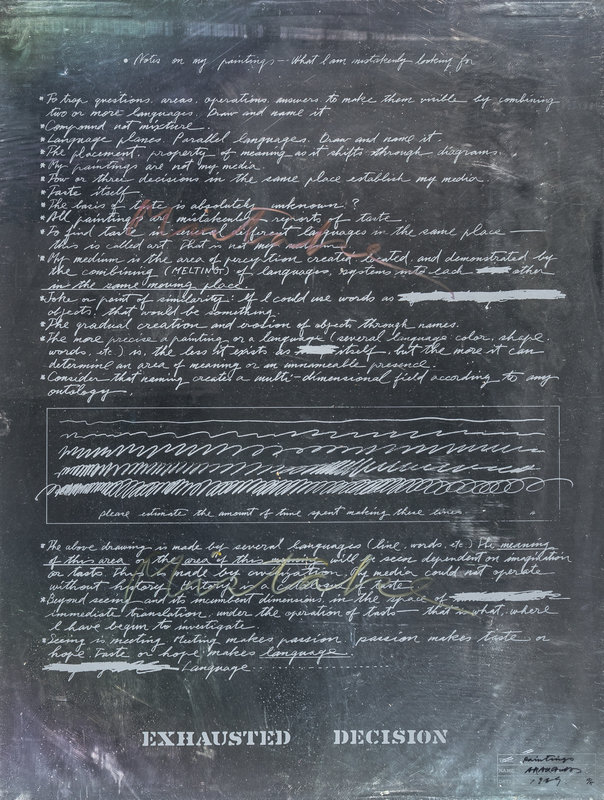 • Notes on my paintings — What I am mistakenly looking for
* To trap questions, areas, operations, answers to make them visible by combining
two or more languages. Draw and name it
* Compound not mixture.
* Language planes. Parallel languages. Draw and name it.
* The placement, property of meaning as it shifts through diagrams.
* My paintings are not my media
* Two or three decisions in the same place establish my media.
* Taste itself.
* The basis of taste is absolutely unknown?
* All painting are mistakenly reports of taste
* To find taste different languages in the same place —
this is called art. That is not my
* My medium is the area of perception created, located, and demonstrated by
the combining (MELTING) of languages, systems into each other
in the same moving place
* Joke or point of similarity: If I could use words as
objects, that would be something.
* The gradual creation and erosion of objects through names.
* The more precise a painting or a language (several language: color, shape,
words, etc.) is, the less it exists as itself, but the more it can
determine an area of meaning or an unnameable presence.
* Consider that naming create a multi-dimensional field according to any
ontology.
please estimate the amount of time spent making these lines
* The above drawing is made by several languages (line, words, etc.) The meaning
of this area or the area of this meaning will be seen dependent on imagination
or taste. This is made by investigation. My media could not operate
without history. History is taste
* Beyond seeing and its incumbent dimensions, in the space of
immediate translation, under the operation of taste — that is what, where
I have begun to investigate
* Seeing is meeting. Meeting makes passion passion makes taste or
hope. Taste or hope makes language.
Language
Mistake
Mistake
EXHAUSTED DECISION
Paintings
NAME ARAKAWA
1969